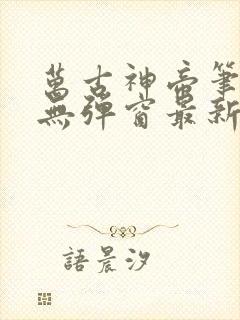 萬古神帝筆
無彈窗最新
語晨汐